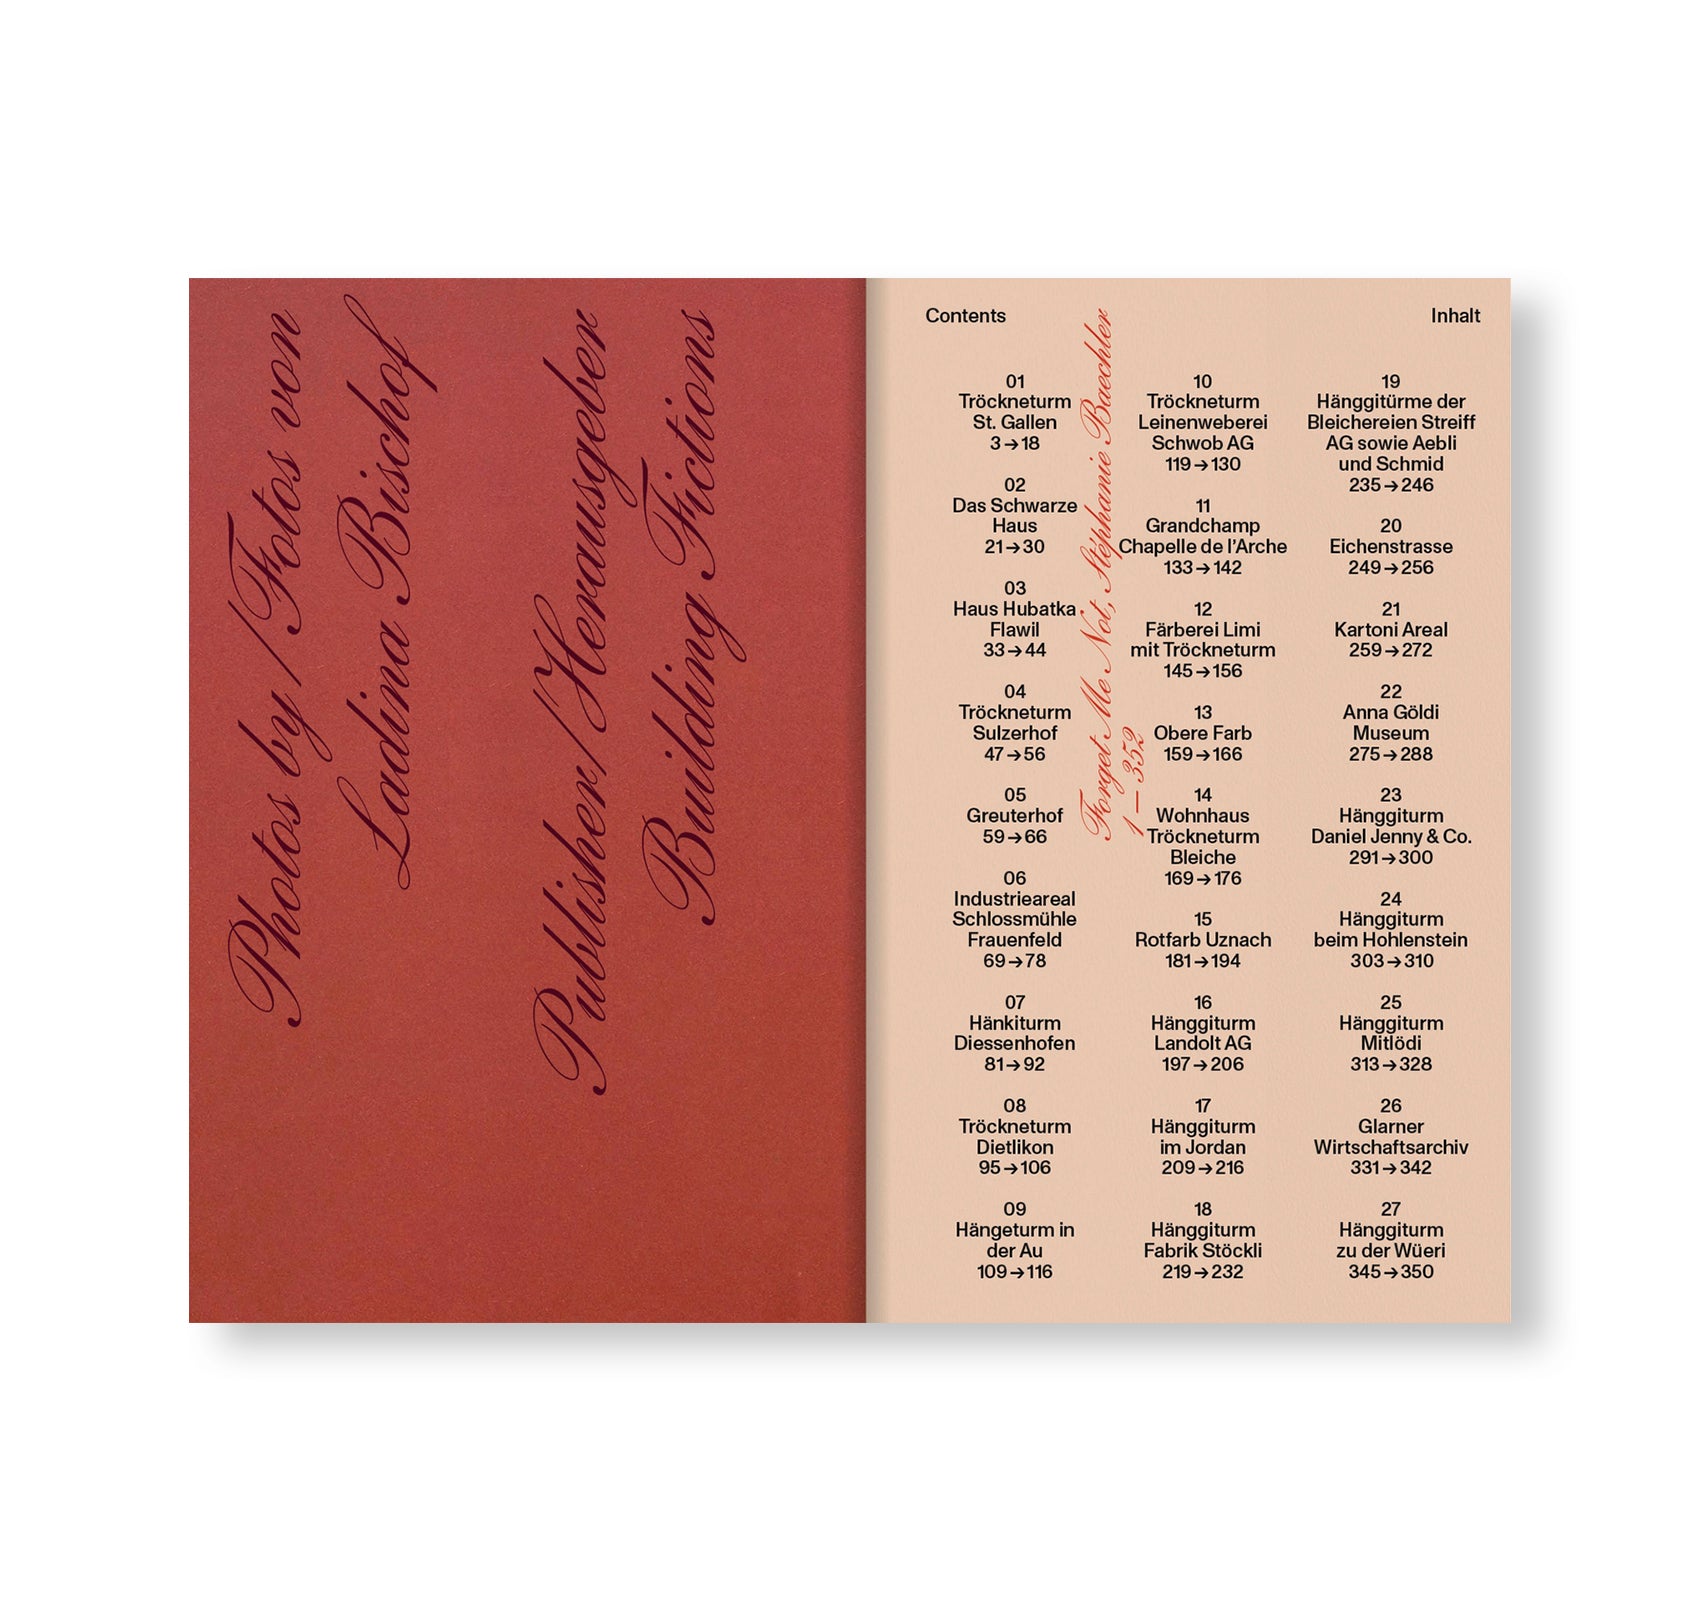 Photos by/Fotos von
Ladina Bischof
Publisher/Herausgeber
Building Fictions
Contents
Inhalt
01
Tröckneturm
St. Gallen
3→18
02
Das Schwarze
Haus
21→30
03
Haus Hubatka
Flawil
33→44
04
Tröckneturm
Sulzerhof
47→56
05
Greuterhof
59→66
06
Industrieareal
Schlossmühle
Frauenfeld
69→78
07
Hänkiturm
Diessenhofen
81→92
08
Tröckneturm
Dietlikon
95→106
09
Hängeturm in
der Au
109→116
Forget Me Not, Stéphanie Baechler
1–352
10
Tröckneturm
Leinenweberei
Schwob AG
119→130
11
Grandchamp
Chapelle de l’Arche
133→142
12
Färberei Limi
mit Tröckneturm
145→156
13
Obere Farb
159→166
14
Wohnhaus
Tröckneturm
Bleiche
169→176
15
Rotfarb Uznach
181→194
16
Hänggiturm
Landolt AG
197→206
17
Hänggiturm
im Jordan
209→216
18
Hänggiturm
Fabrik Stöckli
219→232
19
Hänggitürme der
Bleichereien Streiff
AG sowie Aebli
und Schmid
235→246
20
Eichenstrasse
249→256
21
Kartoni Areal
259→272
22
Anna Göldi
Museum
275→288
23
Hänggiturm
Daniel Jenny & Co.
291→300
24
Hänggiturm
beim Hohlenstein
303→310
25
Hänggiturm
Mitlödi
313→328
26
Glarner
Wirtschaftsarchiv
331→342
27
Hänggiturm
zu der Wüeri
345→350